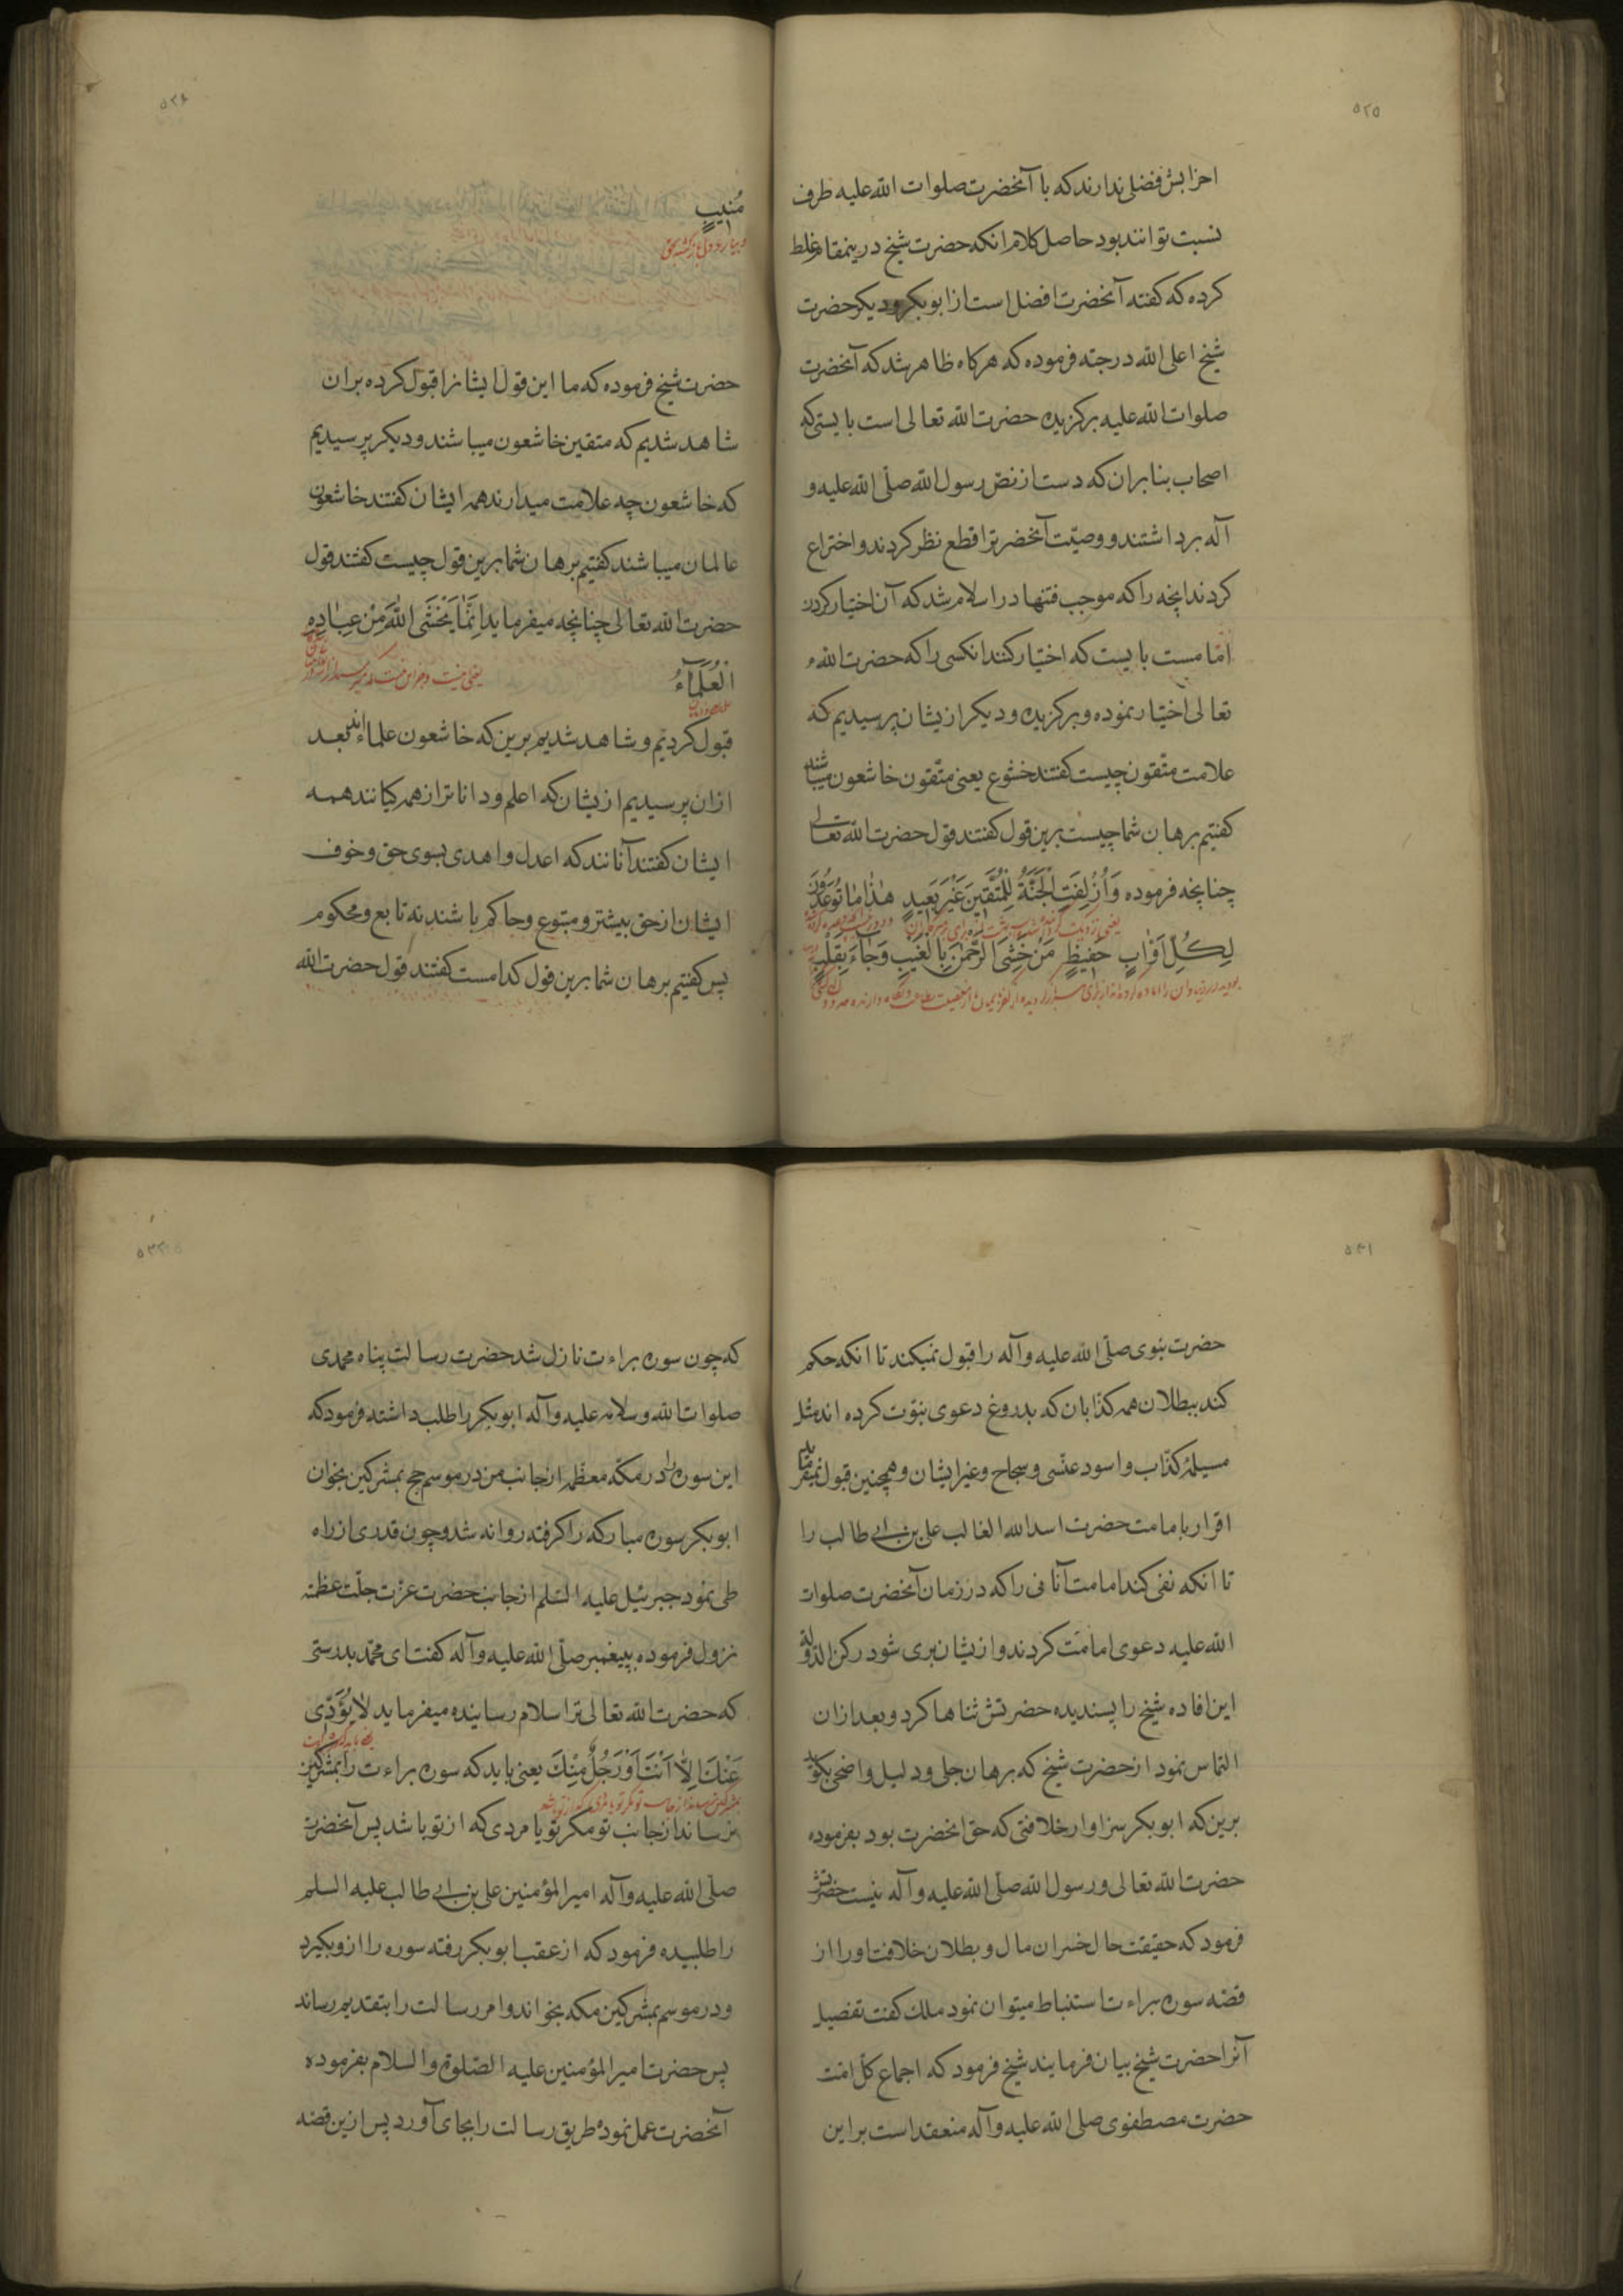 ۵۲۵
احزابش فضلی ندارند که با آنحضرت صلوات الله علیه طرف
نسبت توانند بود حاصل کلام انکه حضرت شیخ درینمقام غلط
کرده که کفته آنحضرت افضل است از ابوبکر و دیکر حضرت
شیخ اعلی الله درجته فرموده که هرکاه ظاهر شد که آنحضرت
صلوات الله علیه برکزیده حضرت الله تعالی است بایستی که
اصحاب بنابران که دست از نص رسول الله صلّی الله علیه و
آله برداشتند و وصیّت آنحضرترا قطع نظر کردند و اختراع
کردند انچه را که موجب فتنها در اسلام شد که آن اختیار کردن
امّا مست بایست که اختیار کنند انکسی را که حضرت الله
تعالی اختیار نموده و برکزیده و دیکر ازیشان پرسیدیم که
علامت متّقون چیست کفتند خشوع یعنی متّقون خاشعون میباشند
کفتیم برهان شما چیست برین قول کفتند قول حضرت الله تعالی
چنانچه فرموده وَاُزْلِفَتِ الْجَنَّةُ لِلْمُتَّقینَ غَیْرَ بَعیدٍ هٰذٰا مٰا تُوعَدُونَ
لِکُلِّ اَوّٰابٍ حَفیظٍ مَنْ خَشِیَ الرَّحْمٰنَ بِالْغَیْبِ وَجٰاءَ بِقَلْبٍ
۵۲۶
مُنیبٍ
حضرت شیخ فرموده که ما این قول ایشانرا قبول کرده بران
شاهد شدیم که متقین خاشعون میباشند و دیکر پرسیدیم
که خاشعون چه علامت میدارند همه ایشان کفتند خاشعون
عالمان میباشند کفتیم برهان شما برین قول چیست کفتند قول
حضرت الله تعالی چنانچه میفرماید اِنَّمٰا یَخْشَی اللّٰهَ مِنْ عِبٰادِهِ
الْعُلَمٰآءُ
قبول کردیم و شاهد شدیم برین که خاشعون علماء اند بعد
ازان پرسیدیم ازیشان که اعلم و داناتر از همه کیانند همه
ایشان کفتند آنانند که اعدل و اهدی بسوی حق و خوف
ایشان از حق بیشتر و متبوع و حاکم باشند نه تابع و محکوم
پس کفتیم برهان شما برین قول کدامست کفتند قول حضرت الله
۵۳۱
حضرت نبوی صلّی الله علیه وآله را قبول نمیکند تا انکه حکم
کند ببطلان همه کذّابان که بدروغ دعوی نبوّت کرده اند مثل
مسیلمهٔ کذّاب و اسود عنسی و سجاح و غیر ایشان و همچنین قبول نمیفرماید
اقرار بامامت حضرت اسد الله الغالب علی بن ابی طالب را
تا انکه نفی کند امامت آنانی را که در زمان آنحضرت صلوات
الله علیه دعوی امامت کردند و ازیشان بری شود رکن الدوله
این افاده شیخ را پسندیده حضرتش ثناها کرد و بعد ازان
التماس نمود از حضرت شیخ که برهان جلی و دلیل واضحی بکوید
برین که ابوبکر سزاوار خلافتی که حق انحضرت بود بفرموده
حضرت الله تعالی و رسول الله صلّی الله علیه وآله نیست حضرتش
فرمود که حقیقت حال خسران مال و بطلان خلافت او را از
قصّه سوره براءت استنباط میتوان نمود ملک کفت تفصیل
آنرا حضرت شیخ بیان فرمایند شیخ فرمود که اجماع کلّ امّت
حضرت مصطفوی صلی الله علیه وآله منعقد است بر این
۵۳۲
که چون سوره براءت نازل شد حضرت رسالت پناه محمدی
صلوات الله وسلامه علیه وآله ابوبکر را طلب داشته فرمود که
این سوره را در مکّه معظّمه از جانب من در موسم حج بمشرکین بخوان
ابوبکر سوره مبارکه را کرفته روانه شد و چون قدری از راه
طی نمود جبرئیل علیه السّلم از جانب حضرت عزّت جلّت عظمته
نزول فرموده بپیغمبر صلّی الله علیه وآله کفت ای محمّد بدرستی
که حضرت الله تعالی ترا سلام رسانیده میفرماید لٰا یُؤَدّی
عَنْکَ اِلّٰا اَنْتَ اَوْ رَجُلٌ مِنْکَ یعنی باید که سوره براءت را بمشرکین
نرساند از جانب تو مکر تو یا مردی که از تو باشد پس آنحضرت
صلّی الله علیه وآله امیر المؤمنین علی بن ابی طالب علیه السلم
را طلبیده فرمود که از عقب ابوبکر رفته سوره را ازو بکیرد
و در موسم بمشرکین مکه بخواند و امر رسالت را بتقدیم رساند
پس حضرت امیر المؤمنین علیه الصّلوة والسلام بفرموده
آنحضرت عمل نموده طریق رسالت را بجای آورد پس ازین قصّه